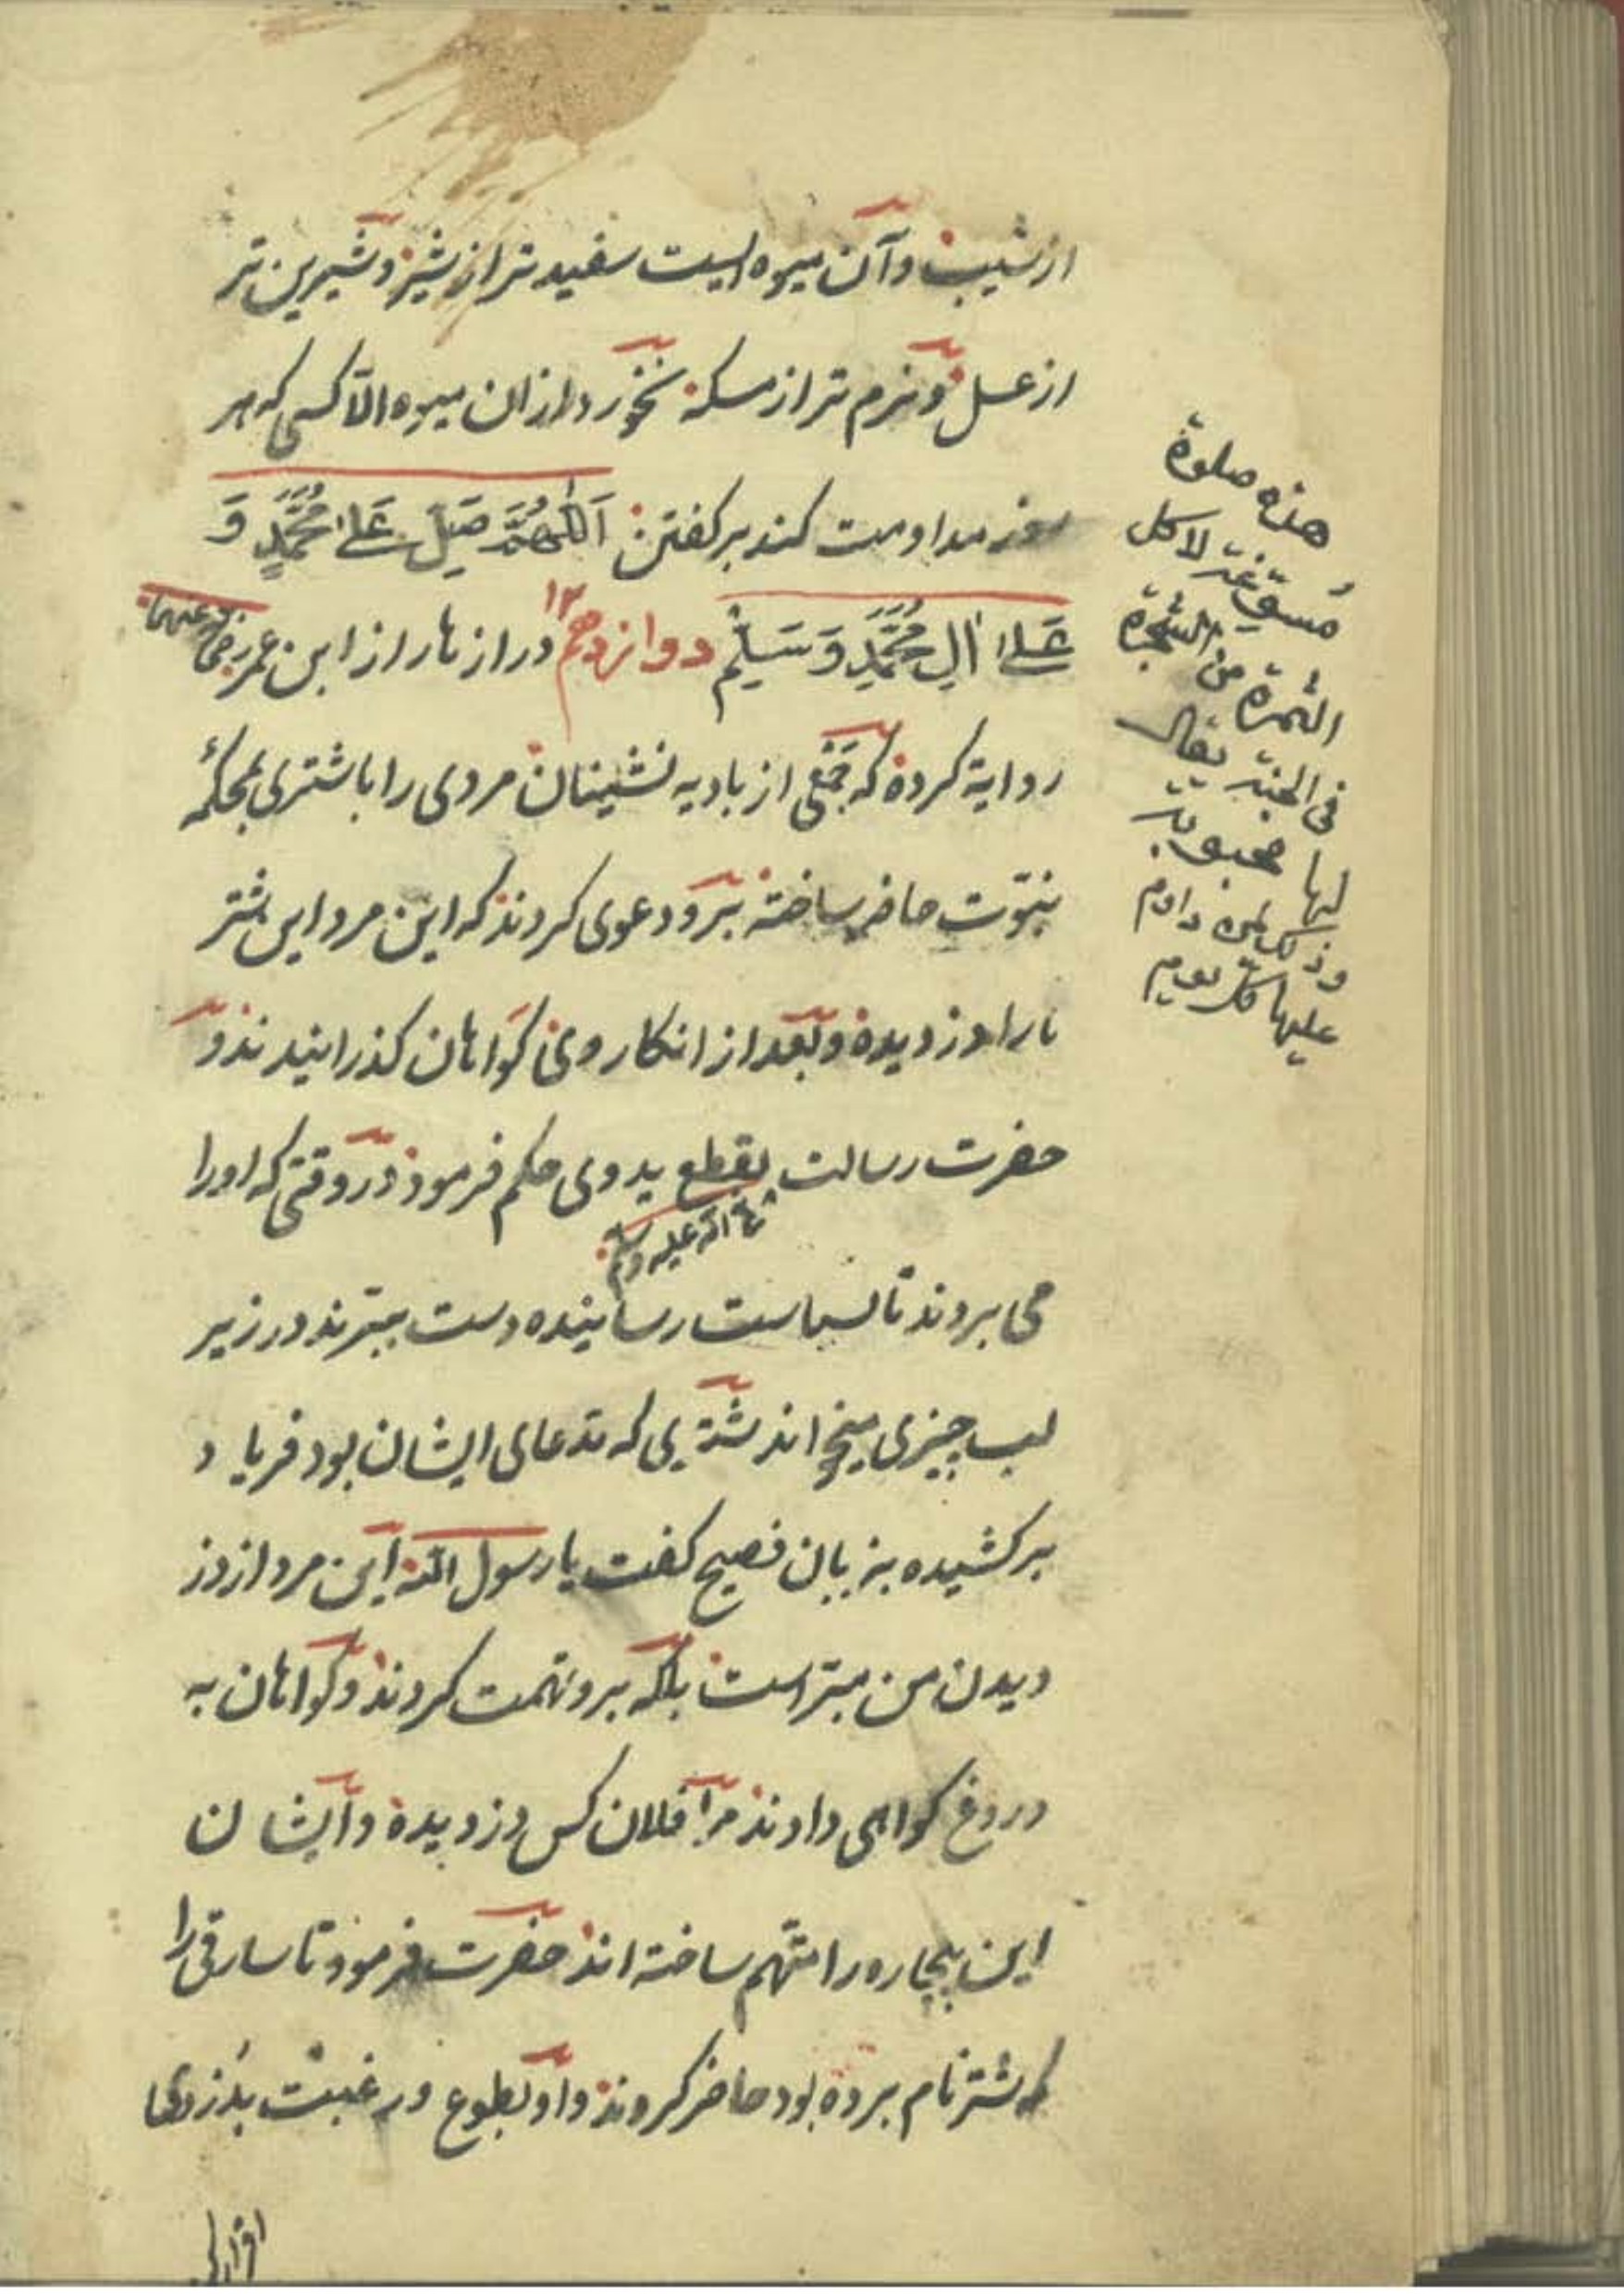 از سیب و آن میوه ایست سفید تر از شیر و شیرین تر
از عسل و نرم تر از مسکه نخورد از ان میوه الا کسی که هر
روز مداومت کند بر کفتن اَللّٰهُمَّ صَلِّ عَلىٰ مُحَمَّدٍ وَ
عَلىٰ اٰلِ مُحَمَّدٍ وَسَلِّمْ دوازدهم ١٢ در ازهار از ابن عمر رضی عنهما
روایة کرده که جمعی از بادیه نشینان مردی را با شتری بمحکمهٔ
نبوّت حاضر ساخته برو دعوی کردند که این مرد این شتر
ما را دزدیده و بعد از انکار وی کواهان کذرانیدند و
حضرت رسالت بقطع ید وی حکم فرمود در وقتی که او را
صلی الله علیه وسلم
می بردند تا بسیاست رسانیده دست ببرند در زیر
لب چیزی میخواند شتری که مدعای ایشان بود فریاد
بر کشیده بزبان فصیح کفت یا رسول الله این مرد از دز
دیدن من مبرّاست بلکه برو تهمت کردند و کواهان به
دروغ کواهی دادند مرا فلان کس دزدیده و ایشان
این بیچاره را متهم ساخته اند حضرت فرمود تا سارقی را
که شتر نام برده بود حاضر کردند و او بطوع و رغبت بدزدی
اقرار
هذه صلوة
لاكل
الثمرة من الشجرة
فی الجنة یقال
لها محبوبة
وذلك لمن داوم
علیها كل یوم